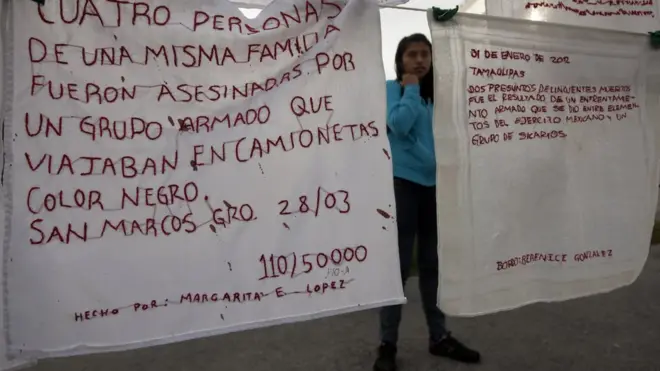 CUATRO PERSONAS
DE UNA MISMA FAMILIA
FUERON ASESINADAS POR
UN GRUPO ARMADO QUE
VIAJABAN EN CAMIONETAS
COLOR NEGRO
SAN MARCOS GRO. 28/03
110/50000
HECHO POR: MARGARITA E. LOPEZ
01 DE ENERO DE 2012
TAMAULIPAS
DOS PRESUNTOS DELINCUENTES MUERTOS
FUE EL RESULTADO DE UN ENFRENTAMIE
NTO ARMADO QUE SE DIO ENTRE ELEMEN
TOS DEL EJERCITO MEXICANO Y UN
GRUPO DE SICARIOS
BORDO: BERENECE GONZALEZ